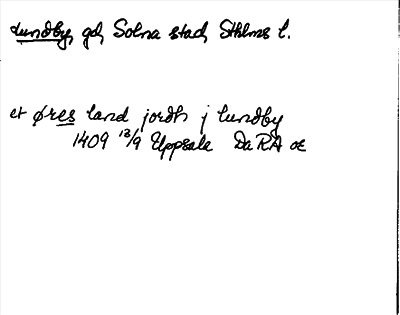 Lundby, gd, Solna stad, Sthlms l.
et øres land jordh j lundby
1409 13/9 Uppsala DaRA or